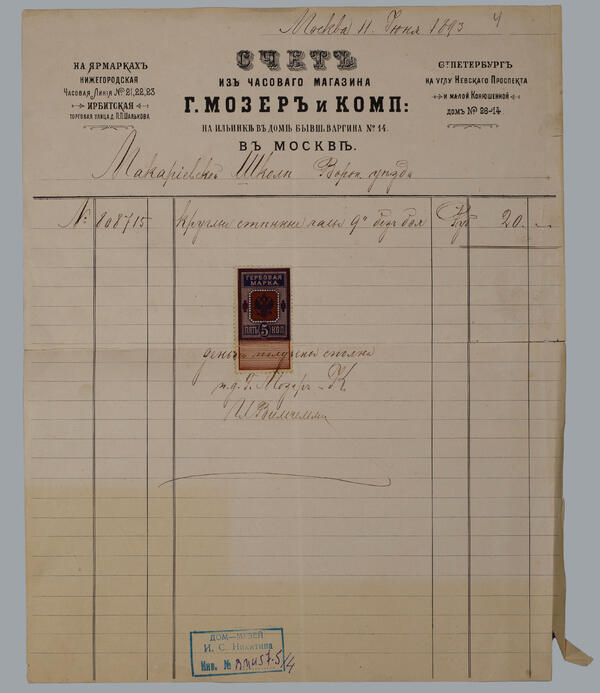 Москва 11 Июня 1893 4
СЧЕТЪ
ИЗЪ ЧАСОВАГО МАГАЗИНА
Г. МОЗЕРЪ и КОМП:
НА ИЛЬИНКѢ ВЪ ДОМѢ БЫВШ. ВАРГИНА № 14.
ВЪ МОСКВѢ.
НА ЯРМАРКАХЪ
НИЖЕГОРОДСКАЯ
ЧАСОВАЯ ЛИНІЯ № 21, 22, 23
ИРБИТСКАЯ
ТОРГОВАЯ УЛИЦА Д. П.П. ШАЛЬКОВА
С.ПЕТЕРБУРГЪ
НА УГЛУ НЕВСКАГО ПРОСПЕКТА
И МАЛОЙ КОНЮШЕННОЙ
ДОМЪ № 26-14.
Макаріевской Школы Ворон. уѣзда
№ 808715 Круглые стѣнные часы 9" безъ боя Руб 20. -
ГЕРБОВАЯ
МАРКА
ПЯТЬ 5 КОП
деньги получены сполна
п.д. Г. Мозеръ и К
ДОМ—МУЗЕЙ
И. С. Никитина
Инв. №